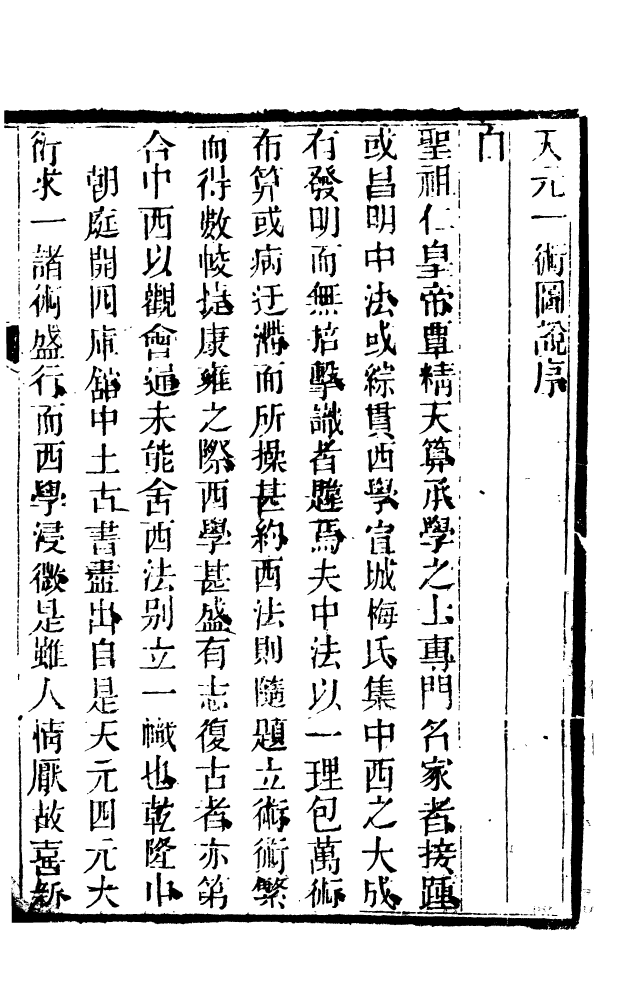 天元一術圖說序
自
聖祖仁皇帝覃精天算承學之士專門名家者接踵
或昌明中法或綜貫西學宣城梅氏集中西之大成
有發明而無掊擊識者韙焉夫中法以一理包萬術
布算或病迂滯而所操甚約西法則隨題立術術繁
而得數㡨捷康雍之際西學甚盛有志復古者亦第
合中西以觀會通未能舍西法別立一幟也乾隆中
朝庭開四庫館中土古書盡出自是天元四元大
衍求一諸術盛行而西學浸微是雖人情厭故喜新